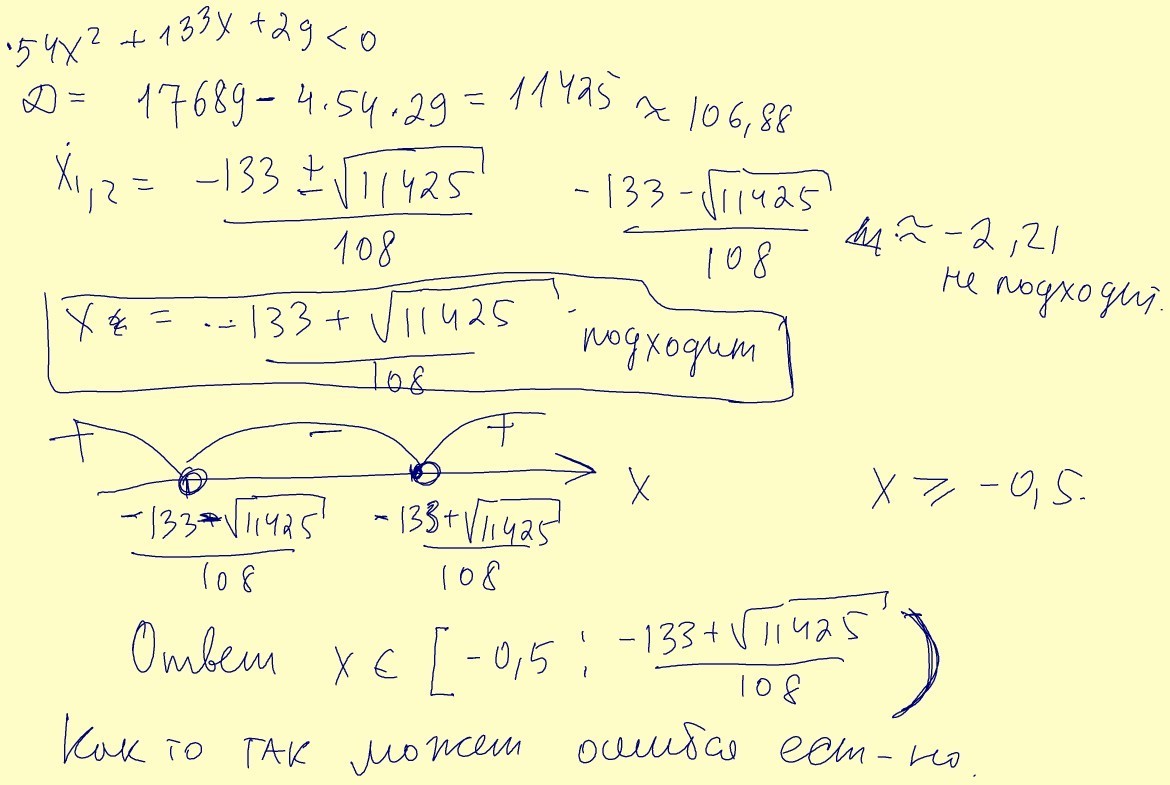 54x² + 133x + 29 < 0
D = 17689 - 4·54·29 = 11425 ≈ 106,88
x₁,₂ = (-133 ± √11425)/108 (-133 - √11425)/108 ≈ -2,21
не подходит.
x = (-133 + √11425)/108 подходит
+ - +
x x ⩾ -0,5.
(-133 - √11425)/108 (-133 + √11425)/108
Ответ x ∈ [-0,5 ; (-133 + √11425)/108)
Как то так может ошибся ест-но.